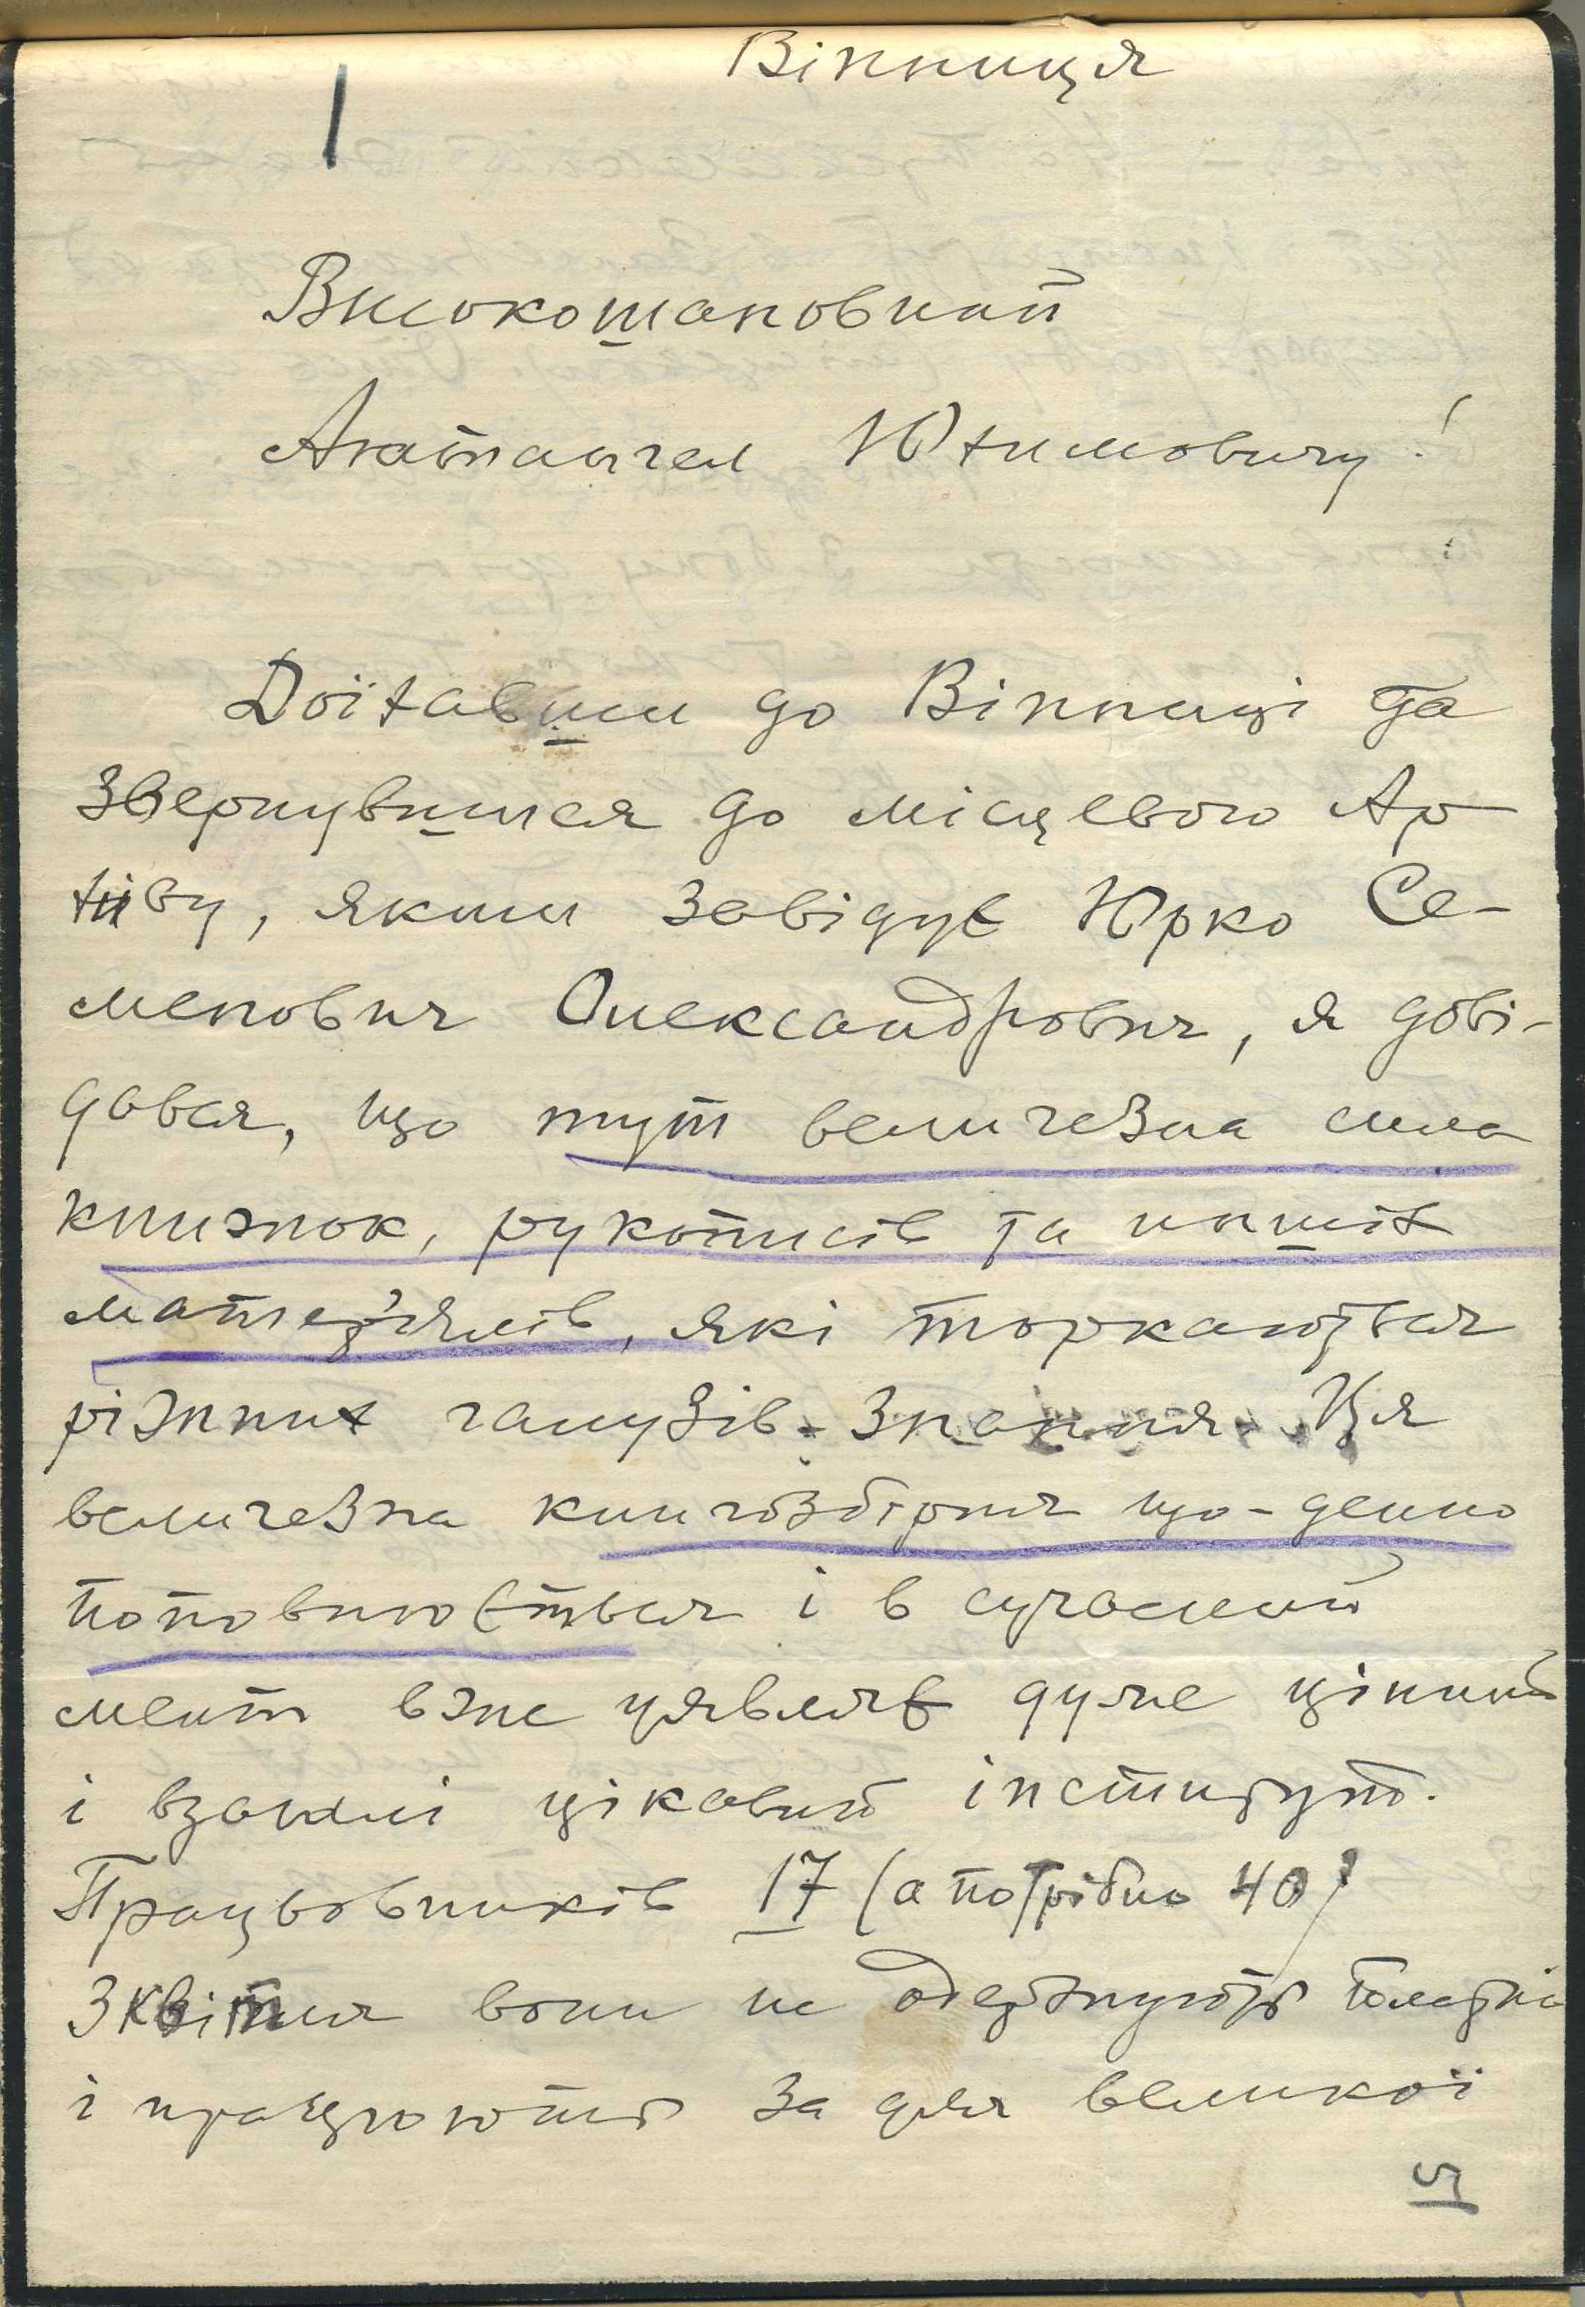 Вінниця
1
Високошановний
Агатангел Юхимовичу!
Доїхавши до Вінниці та
звернувшися до місцевого Ар
хіву, яким завідує Юрко Се-
менович Олександрович, я дові-
давсь, що тут величезна сила
книжок, рукописів та инших
матер'ялів, які торкаються
ріжних галузів знання. Ця
величезна книгозбірня що-денно
поповнюється і в сучасний
мент вже уявляє дуже цінний
і взагалі цікавий інститут.
Працьовників 17 (а потрібно 40)
З квітня вони не одержують платні
і працюють за для великої
5